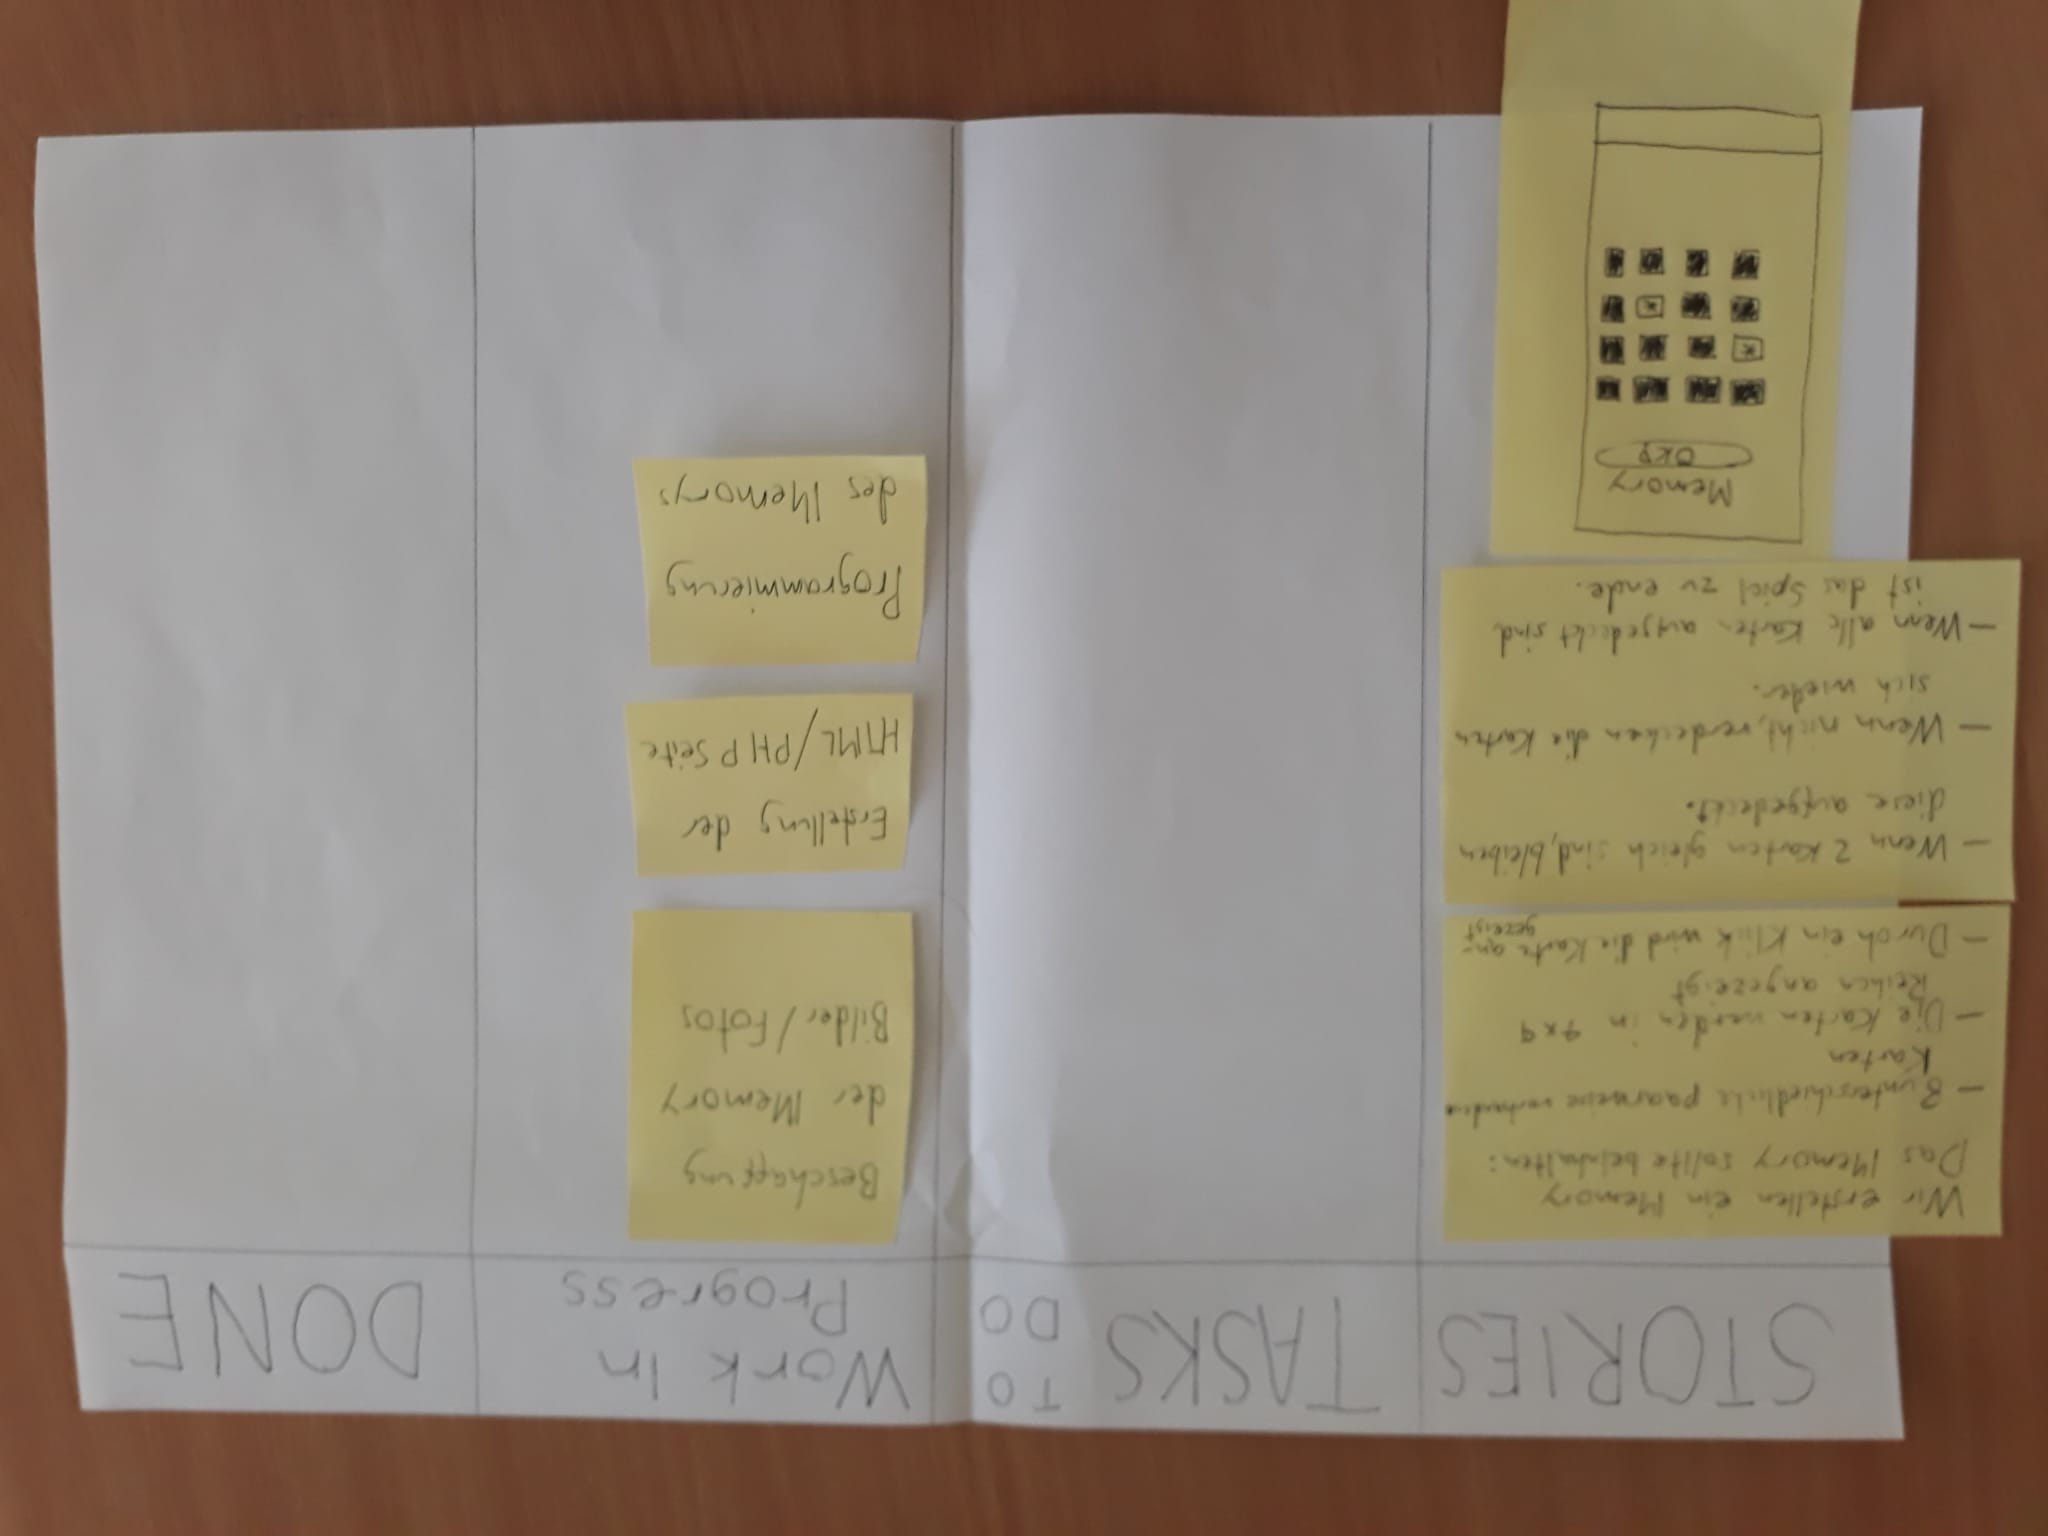 STORIES
TASKS
TO
DO
Work In
Progress
DONE
Wir erstellen ein Memory
Das Memory sollte beinhalten:
— 8 unterschiedliche paarweise vorhandene
Karten
— Die Karten werden in 4x4
Reihen angezeigt
— Durch ein Klick wird die Karte an-
gezeigt
— Wenn 2 Karten gleich sind, bleiben
diese aufgedeckt.
— Wenn nicht, verdecken die Karten
sich wieder.
— Wenn alle Karten aufgedeckt sind
ist das Spiel zu ende.
Memory
Beschaffung
der Memory
Bilder/Fotos
Erstellung der
HTML/PHP Seite
Programmierung
des Memorys